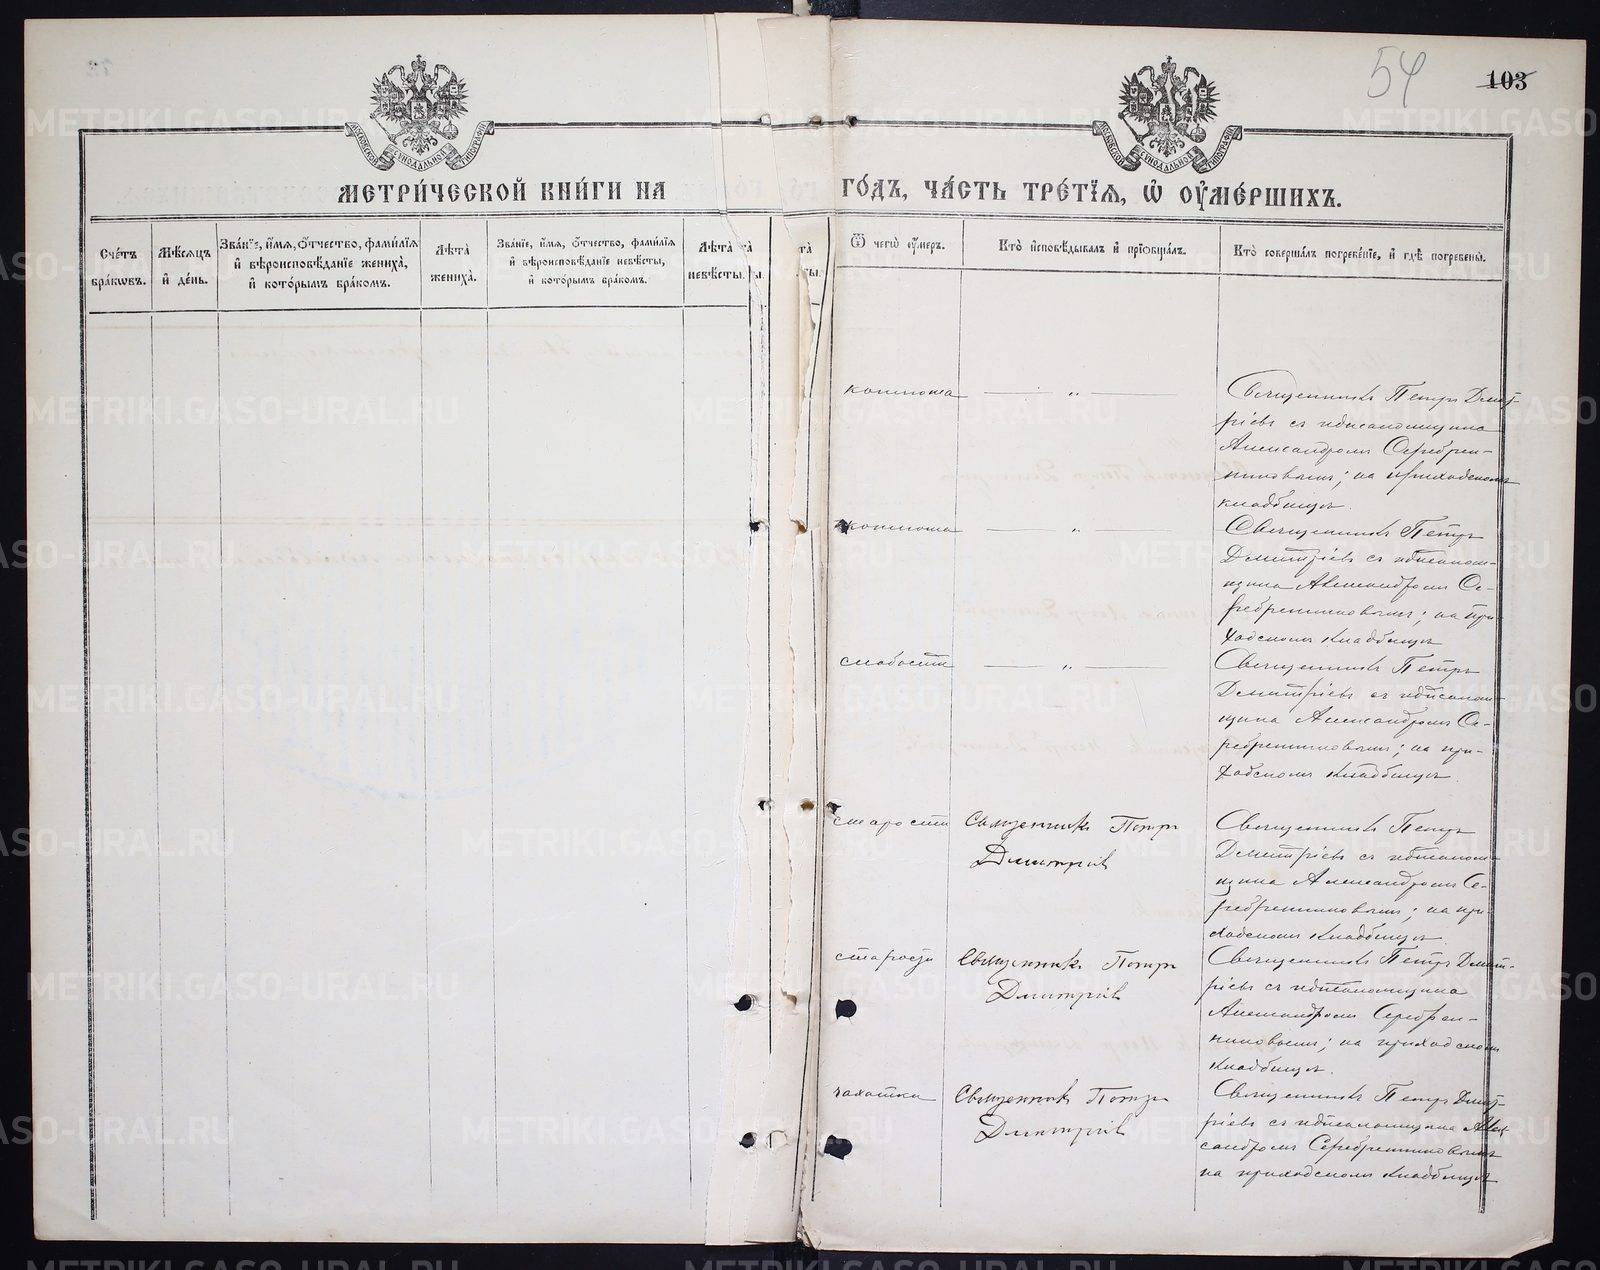 54
103
МОСКОВСКОЙ СѴНОДАЛЬНОЙ ТИПОГРАФІИ
МОСКОВСКОЙ СѴНОДАЛЬНОЙ ТИПОГРАФІИ
МЕТРИ́ЧЕСКОЙ КНИ́ГИ НА
ГО́ДЪ, ЧА́СТЬ ТРЕ́ТЇѦ, Ѡ҆ ОУ҆МЕ́РШИХЪ.
Сче́тъ бра́кѡвъ.
Мѣ́сѧцъ и҆ де́нь.
Зва́нїе, и҆́мѧ, ѻ҆́тчество, фами́лїѧ
и҆ вѣроисповѣ́данїе жениха̀,
и҆ кото́рымъ бра́комъ.
Лѣ́та жениха̀.
Зва́нїе, и҆́мѧ, ѻ҆́тчество, фами́лїѧ
и҆ вѣроисповѣ́данїе невѣ́сты,
и҆ кото́рымъ бра́комъ.
Лѣ́та невѣ́сты.
Ѿ чегѡ̀ оу҆́меръ.
Кто̀ и҆сповѣ́дывалъ и҆ прїѡбща́лъ.
Кто̀ соверша́лъ погребе́нїе, и҆ гдѣ̀ погребены̀.
коклюша
— „ —
Священникъ Петръ Димит-
ріевъ съ псаломщикомъ
Александромъ Серебрен-
никовымъ; на приходскомъ
кладбищѣ.
коклюша
— „ —
Священникъ Петръ
Димитріевъ съ псалом-
щикомъ Александромъ Се-
ребренниковымъ; на при-
ходскомъ кладбищѣ
слабости
— „ —
Священникъ Петръ
Димитріевъ съ псалом-
щикомъ Александромъ Се-
ребренниковымъ; на при-
ходскомъ кладбищѣ.
старости
Священникъ Петръ
Димитріевъ
Священникъ Петръ
Димитріевъ съ псалом-
щикомъ Александромъ Се-
ребренниковымъ; на при-
ходскомъ кладбищѣ.
старости
Священникъ Петръ
Димитріевъ
Священникъ Петръ Димит-
ріевъ съ псаломщикомъ
Александромъ Серебрен-
никовымъ; на приходскомъ
кладбищѣ.
чахотки
Священникъ Петръ
Димитріевъ
Священникъ Петръ Димит-
ріевъ съ псаломщикомъ Алек-
сандромъ Серебренниковымъ
на приходскомъ кладбищѣ
METRIKI.GASO-URAL.RU